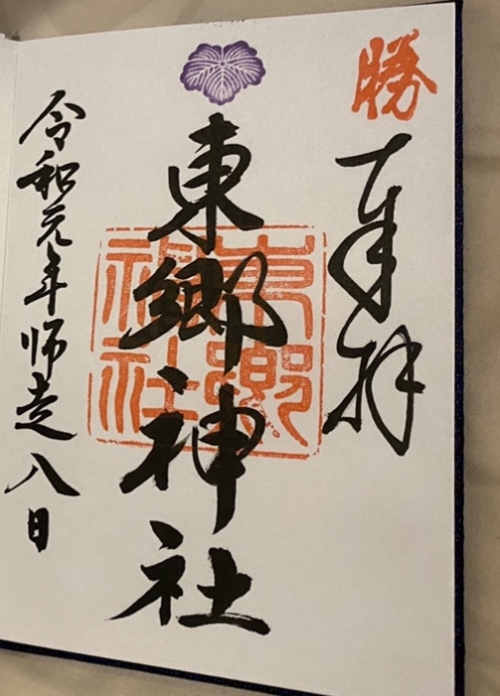 勝
奉拝
東郷神社
東郷神社
令和元年師走八日